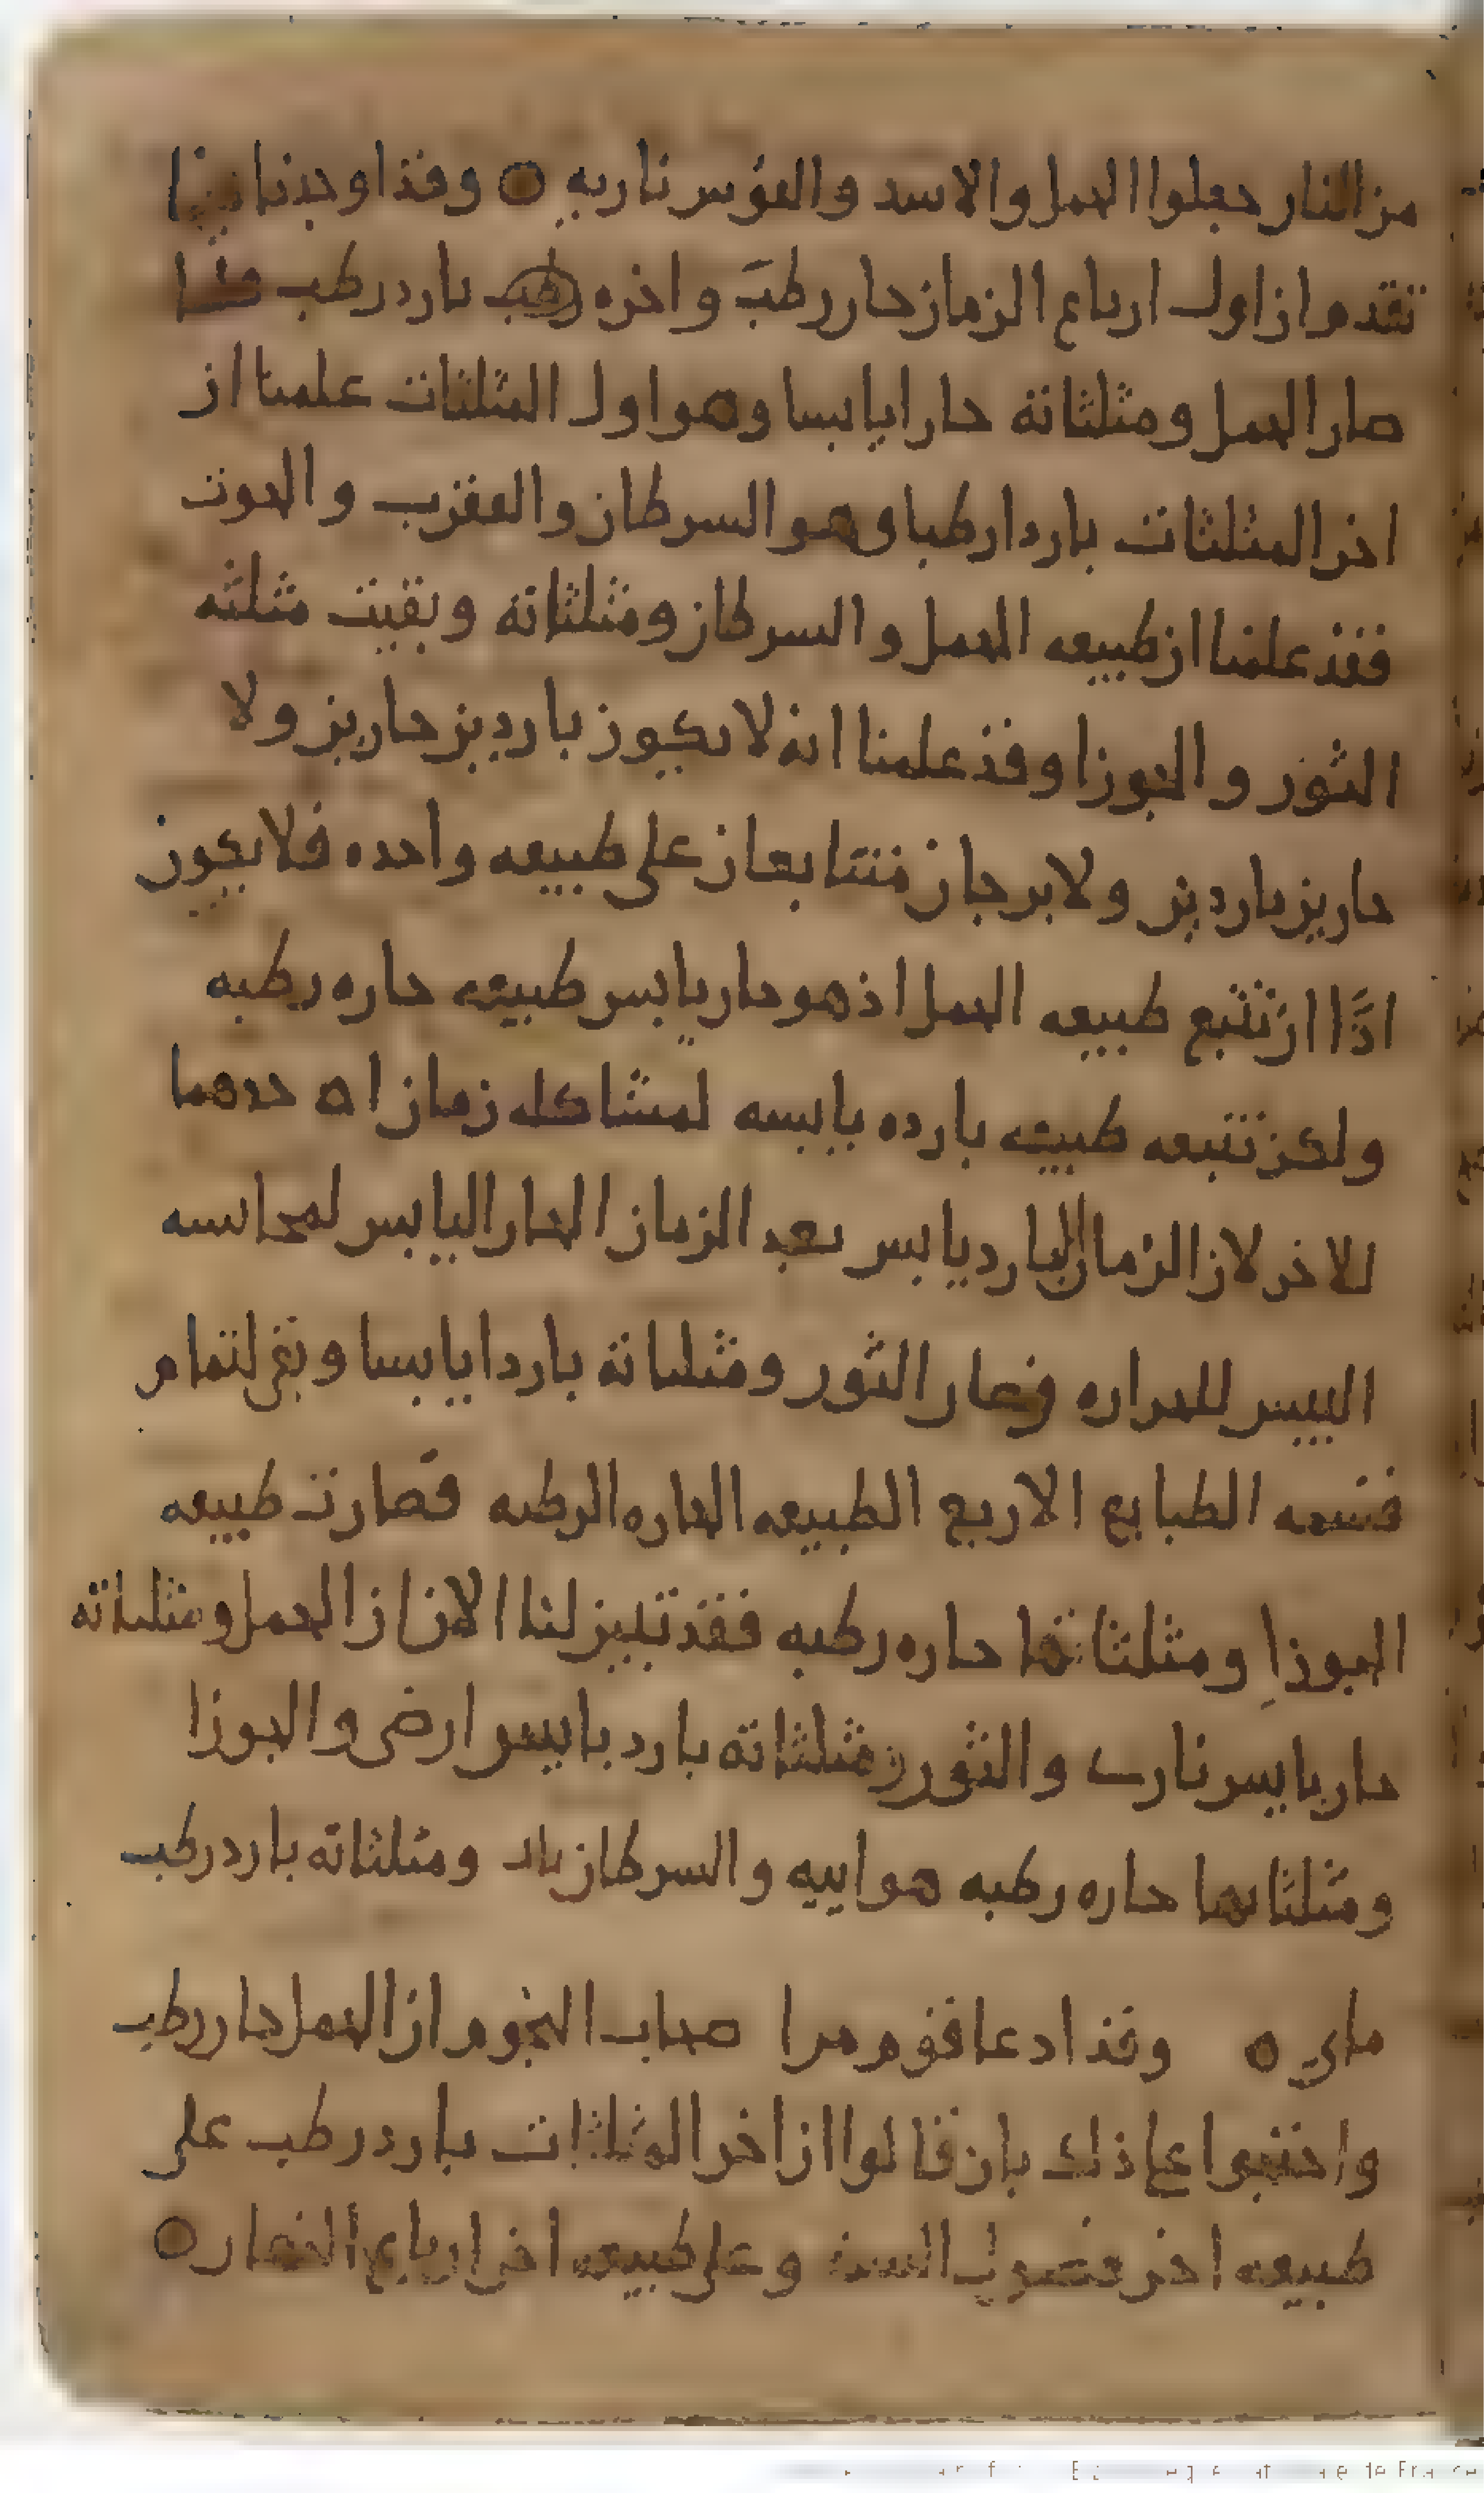 من النار جعلوا الحمل والاسد والقوس ناريه ○ وقذ اوجبنا فيما
تقدم ان اول ارباع الزمان حار رطب واخره رطب بارد رطب فلما
صار الحمل ومثلثاته حارا يابسا وهو اول المثلثات علمنا ان
اخر المثلثات باردا رطبا وهو السرطان والعقرب والحوت
فقذ علمنا ان طبيعه الحمل والسرطان ومثلثاته وبقيت مثلثه
الثور والجوزا وقذ علمنا انه لا يكون باردين حارين ولا
حارين باردين ولا برجان متتابعان على طبيعه واحده فلا يكون
اذًا ان تتبع طبيعه الحمل اذ هو حار يابس طبيعه حاره رطبه
ولكن تتبعه طبيعه بارده يابسه لمشاكله زمان احدهما
للاخر لان الزمان البارد يابس بعد الزمان الحار اليابس لمجانسه
اليبس للحراره فصار الثور ومثلثاته باردا يابسا وبقى لتمام
قسمه الطبايع الاربع الطبيعه الحاره الرطبه فصارت طبيعه
الجوزا ومثلثاتها حاره رطبه فقذ تبين لنا الان ان الحمل ومثلثاته
حار يابس نارى والثور ومثلثاته بارد يابس ارضى والجوزا
ومثلثاتها حاره رطبه هواييه والسرطان ومثلثاته بارد رطب
ماى ○ وقذ ادعا قوم من اصحاب النجوم ان الحمل حار رطب
واحتجوا على ذلك بان قالوا ان اخر المثلثات بارد رطب على
طبيعه اخر فصول السنه وعلى طبيعه اخر ارباع النهار ○